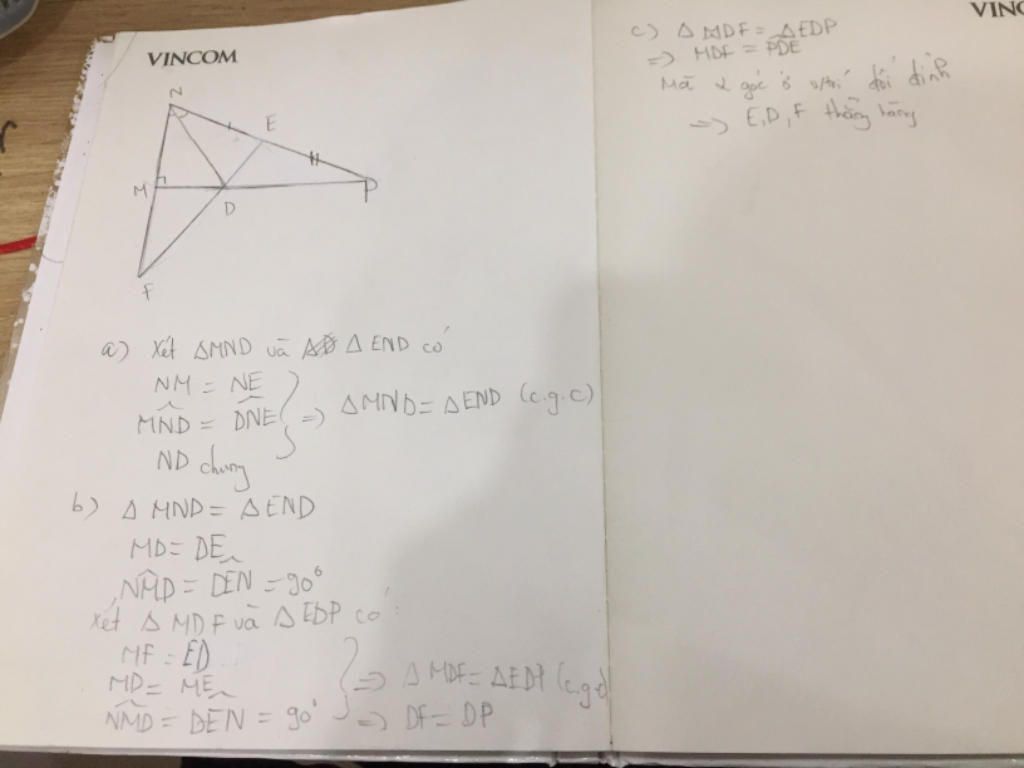 VINCOM
N
E
M
D
P
F
a) Xét ΔMND và Δ END có
NM = NE
MND = DNE => ΔMND = ΔEND (c.g.c)
ND chung
b) Δ MND = Δ END
MD = DE
NMD = DEN = 90°
Xét Δ MDF và Δ EDP có:
MF = ED
MD = ME => Δ MDF = ΔEDP (c.g.c)
NMD = DEN = 90° => DF = DP
VINC
c) Δ MDF = ΔEDP
=> MDF = PDE
Mà 2 góc ở vị trí đối đỉnh
=> E, D, F thẳng hàng